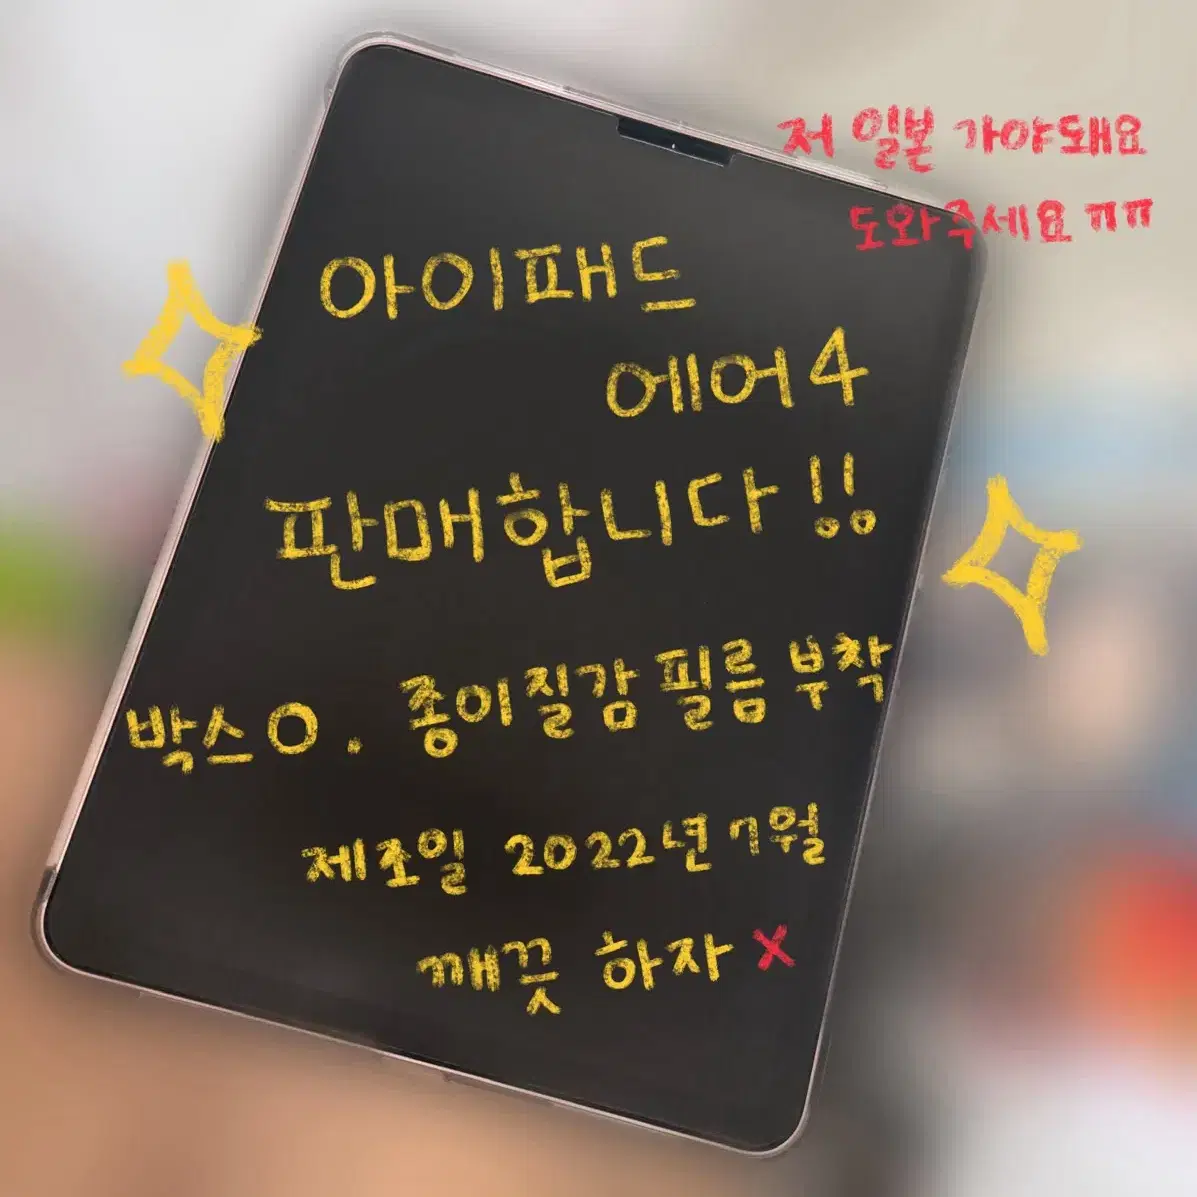 저 일본 가야돼요
도와주세요 ㅠㅠ
아이패드
에어4
판매합니다!!
박스O. 종이질감 필름 부착
제조일 2022년 7월
깨끗 하자 X